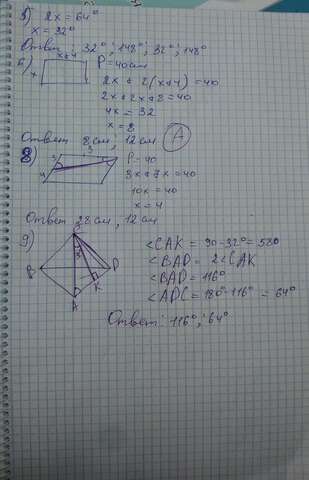 5) 2x = 64°
x = 32°
Ответ: 32°; 148°; 32°; 148°
6) x+4 P = 40 см
x
2x + 2(x+4) = 40
2x + 2x + 8 = 40
4x = 32
x = 8
Ответ 8 см; 12 см
A
8) P = 40
3x + 7x = 40
10x = 40
x = 4
Ответ 28 см, 12 см
9)
<CAK = 90-32° = 58°
B D <BAD = 2<CAK
K <BAD = 116°
A <ADC = 180°-116° = 64°
Ответ: 116°; 64°